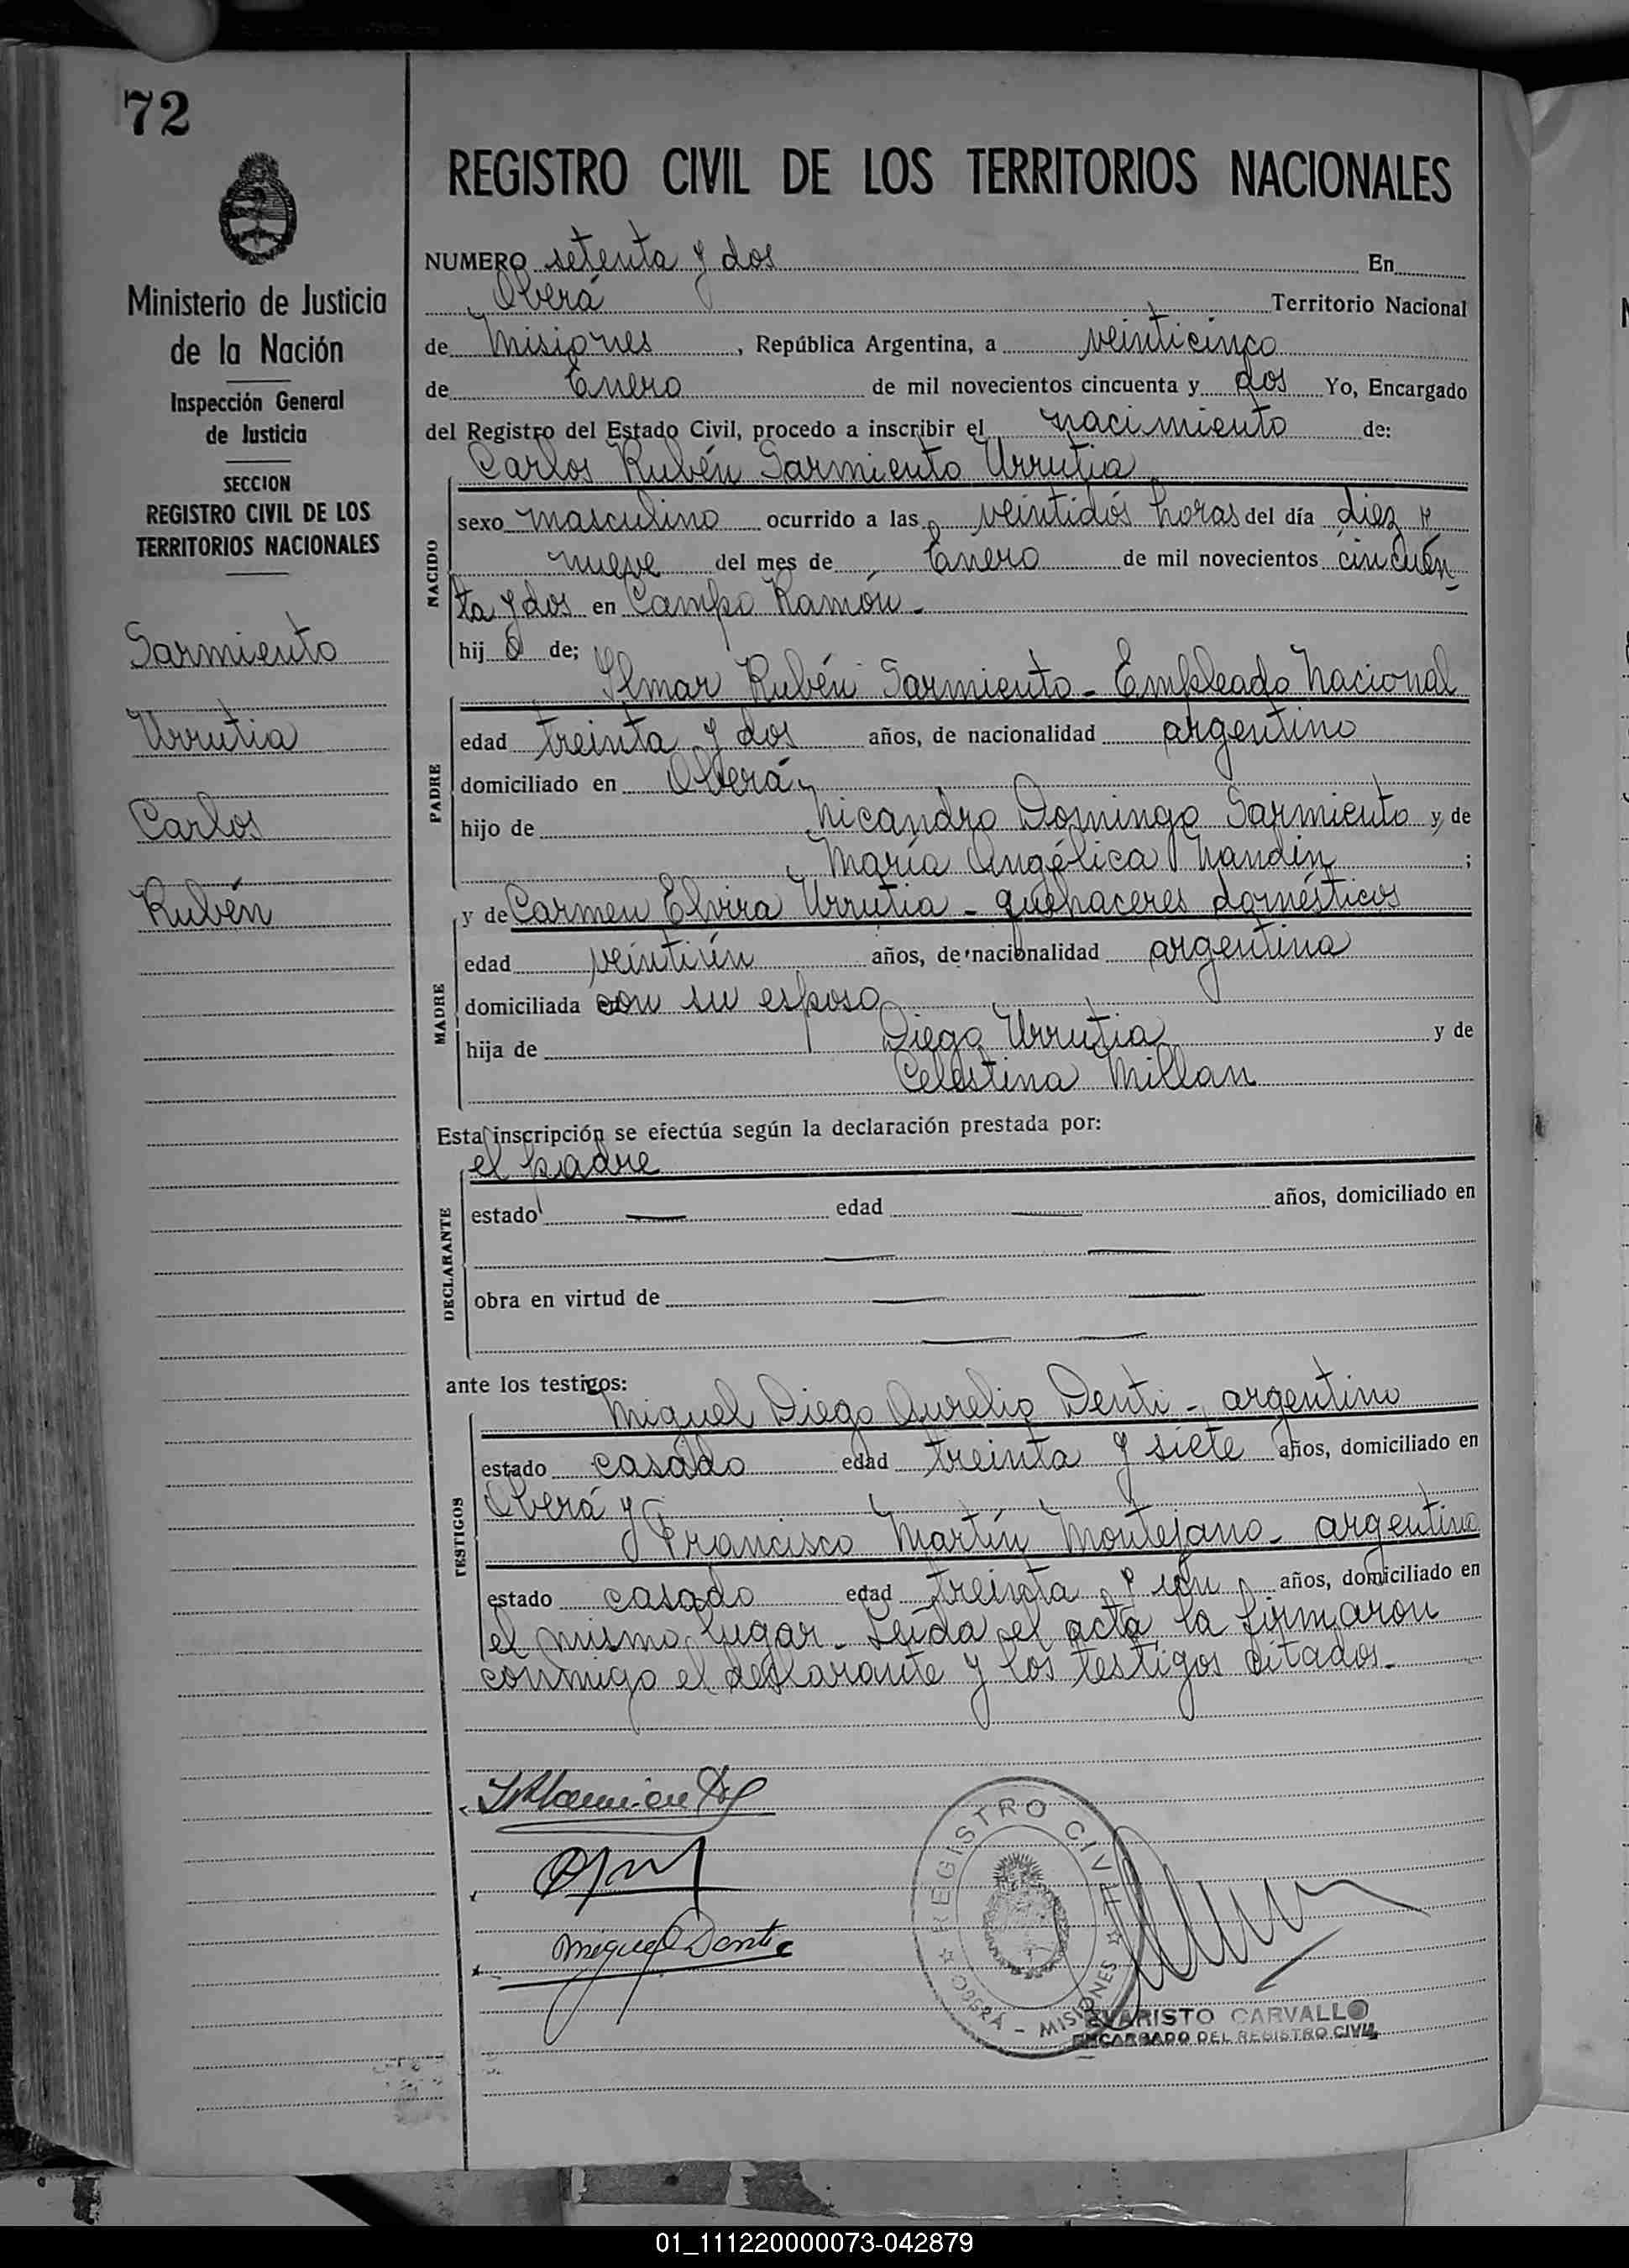 72
Ministerio de Justicia
de la Nación
Inspección General
de Justicia
SECCION
REGISTRO CIVIL DE LOS
TERRITORIOS NACIONALES
Sarmiento
Urrutia
Carlos
Rubén
REGISTRO CIVIL DE LOS TERRITORIOS NACIONALES
NUMERO setenta y dos En
Oberá Territorio Nacional
de Misiones, República Argentina, a veinticinco
de Enero de mil novecientos cincuenta y dos Yo, Encargado
del Registro del Estado Civil, procedo a inscribir el nacimiento de:
Carlos Rubén Sarmiento Urrutia
NACIDO
sexo masculino ocurrido a las veintidós horas del día diez y
nueve del mes de Enero de mil novecientos cincuen-
ta y dos en Campo Ramón-
hijo de;
PADRE
Ilmar Rubén Sarmiento - Empleado Nacional
edad treinta y dos años, de nacionalidad argentino
domiciliado en Oberá
hijo de Nicandro Domingo Sarmiento y de
María Angélica Nandin;
MADRE
y de Carmen Elvira Urrutia - quehaceres domésticos
edad veintiún años, de nacionalidad argentina
domiciliada con su esposo
hija de Diego Urrutia y de
Celestina Millan
Esta inscripción se efectúa según la declaración prestada por:
el padre
DECLARANTE
estado — edad — años, domiciliado en
— —
obra en virtud de — —
— —
ante los testigos:
TESTIGOS
Miguel Diego Aurelio Denti - argentino
estado casado edad treinta y siete años, domiciliado en
Oberá y
Francisco Martín Montejano - argentino
estado casado edad treinta y un años, domiciliado en
el mismo lugar - Leída el acta la firmaron
conmigo el declarante y los testigos citados.-
Miguel Denti
REGISTRO CIVIL
OBERÁ - MISIONES
EVARISTO CARVALLO
ENCARGADO DEL REGISTRO CIVIL
01_111220000073-042879